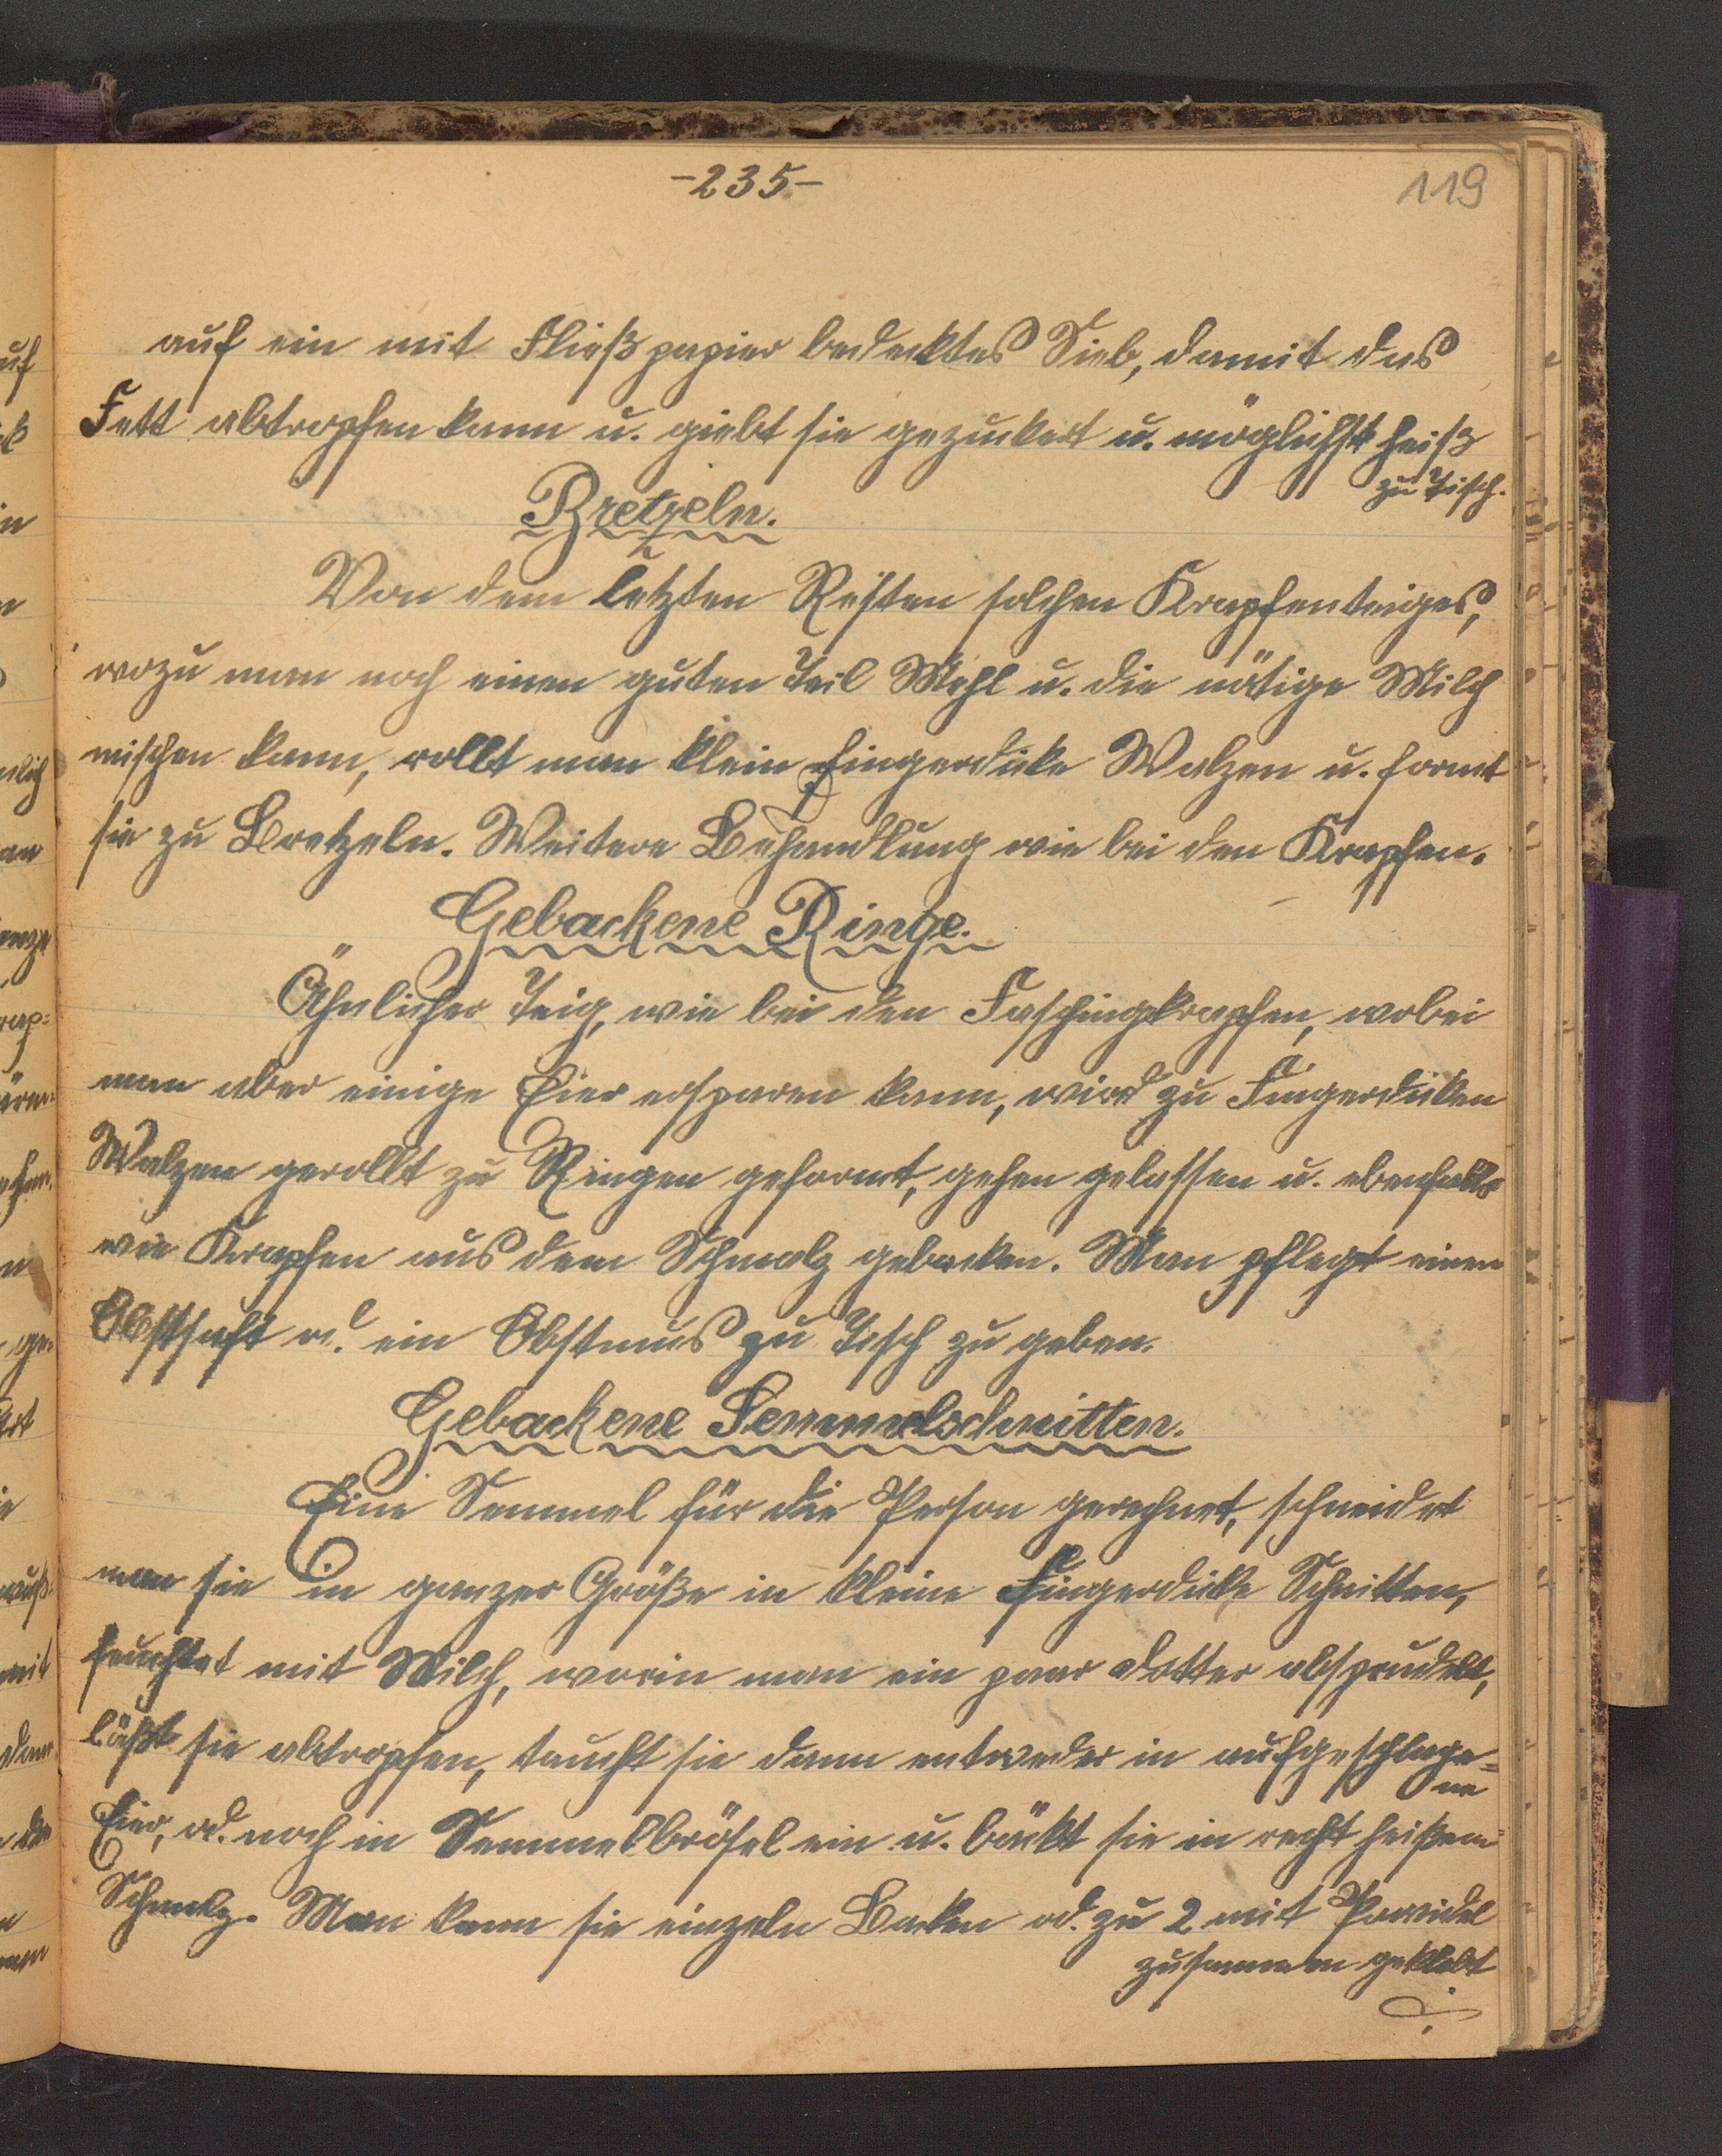 -235-
119
auf ein mit Fließpapier bedecktes Sieb, damit das
Fett abtropfen kann u. giebt sie gezuckert u. möglichst heiß
zu Tisch.
Bretzeln.
Von dem letzten Resten solchen Krapfenteiges,
wozu man noch einen guten Teil Mehl u. die nötige Milch
mischen kann, rollt man klein fingerdicke Walzen u. formt
sie zu Bretzeln. Weitere Behandlung wie bei den Krapfen.
Gebackene Ringe.
Ähnlicher Teig, wie bei den Faschingkrapfen, wobei
man aber einige Eier ersparen kann, wird zu Fingerdicken
Walzen gerollt zu Ringen geformt, gehen gelassen u. ebenfalls
wie Krapfen aus dem Schmalz gebacken. Man pflegt einen
Obstsaft od. ein Obstmus zu Tisch zu geben.
Gebackene Semmelschnitten.
Eine Semmel für die Person gerechnet, schneidet
man sie in ganzer Größe in kleine Fingerdicke Schnitten,
feuchtet mit Milch, worin man ein paar Dotter absprudelt,
läßt sie abtropfen, taucht sie dann entweder in aufgeschlage=
ne
Eier, od. noch in Semmelbrösel ein u. bäckt sie in recht heißem
Schmalz. Man kann sie einzeln Backen od. zu 2 mit Powidel
zusammen geklebt